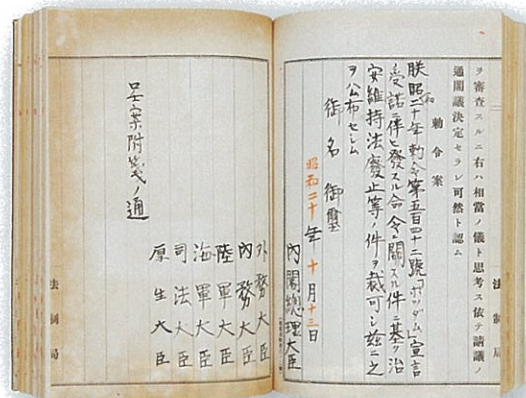 ヲ審査スルニ右ハ相當ノ儀ト思考ス依テ請議ノ
通閣議決定セラレ可然ト認ム
勅令案
朕昭和二十年勅令第五百四十二號「ポツダム」宣言
受諾ニ伴ヒ發スル命令ニ關スル件ニ基ク治
安維持法廢止等ノ件ヲ裁可シ茲ニ之
ヲ公布セシム
御名御璽
昭和二十年十月十三日
內閣總理大臣
法制局
外務大臣
內務大臣
陸軍大臣
海軍大臣
司法大臣
厚生大臣
呈案附箋ノ通
法制局